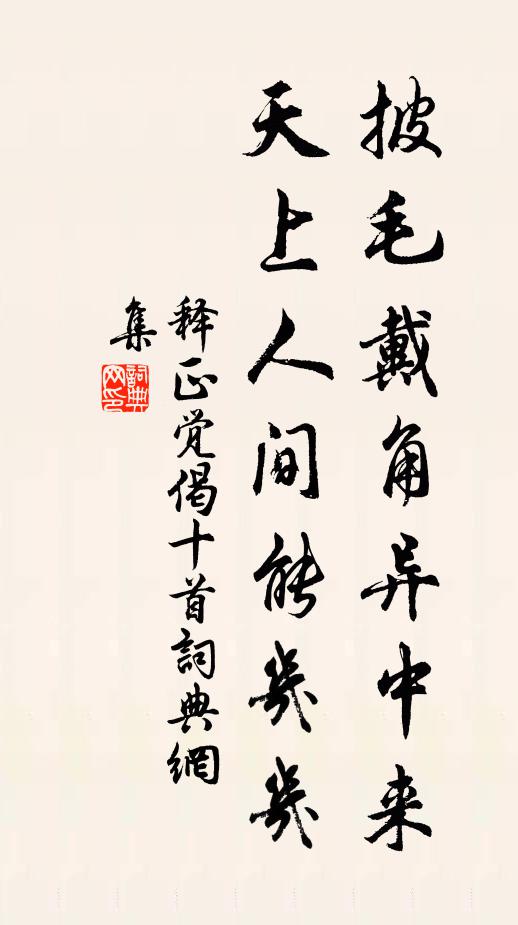 披毛戴角异中来
天上人间能几几
释正觉偈十首詞典網
集
詞典网印